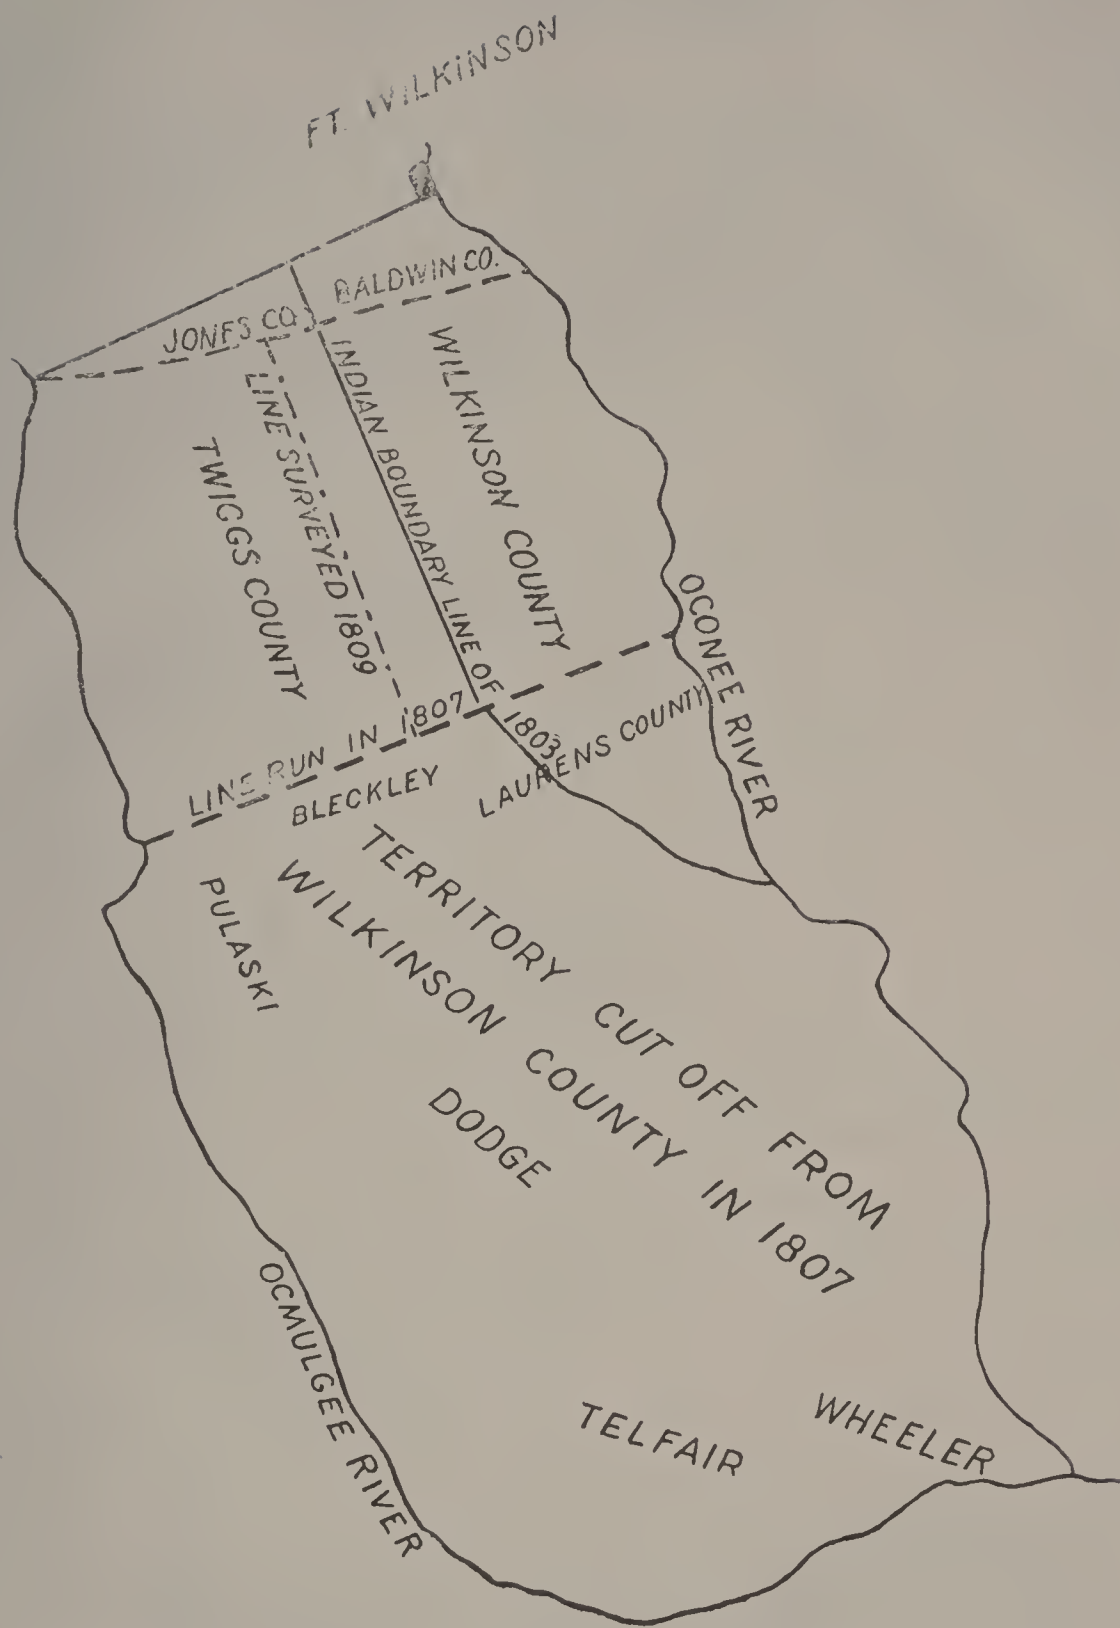 FT. WILKINSON
BALDWIN CO.
JONES CO.
WILKINSON COUNTY
INDIAN BOUNDARY LINE OF 1803
LINE SURVEYED 1809
TWIGGS COUNTY
OCONEE RIVER
LINE RUN IN 1807
LAURENS COUNTY
BLECKLEY
TERRITORY CUT OFF FROM
WILKINSON COUNTY IN 1807
PULASKI
DODGE
OCMULGEE RIVER
TELFAIR
WHEELER